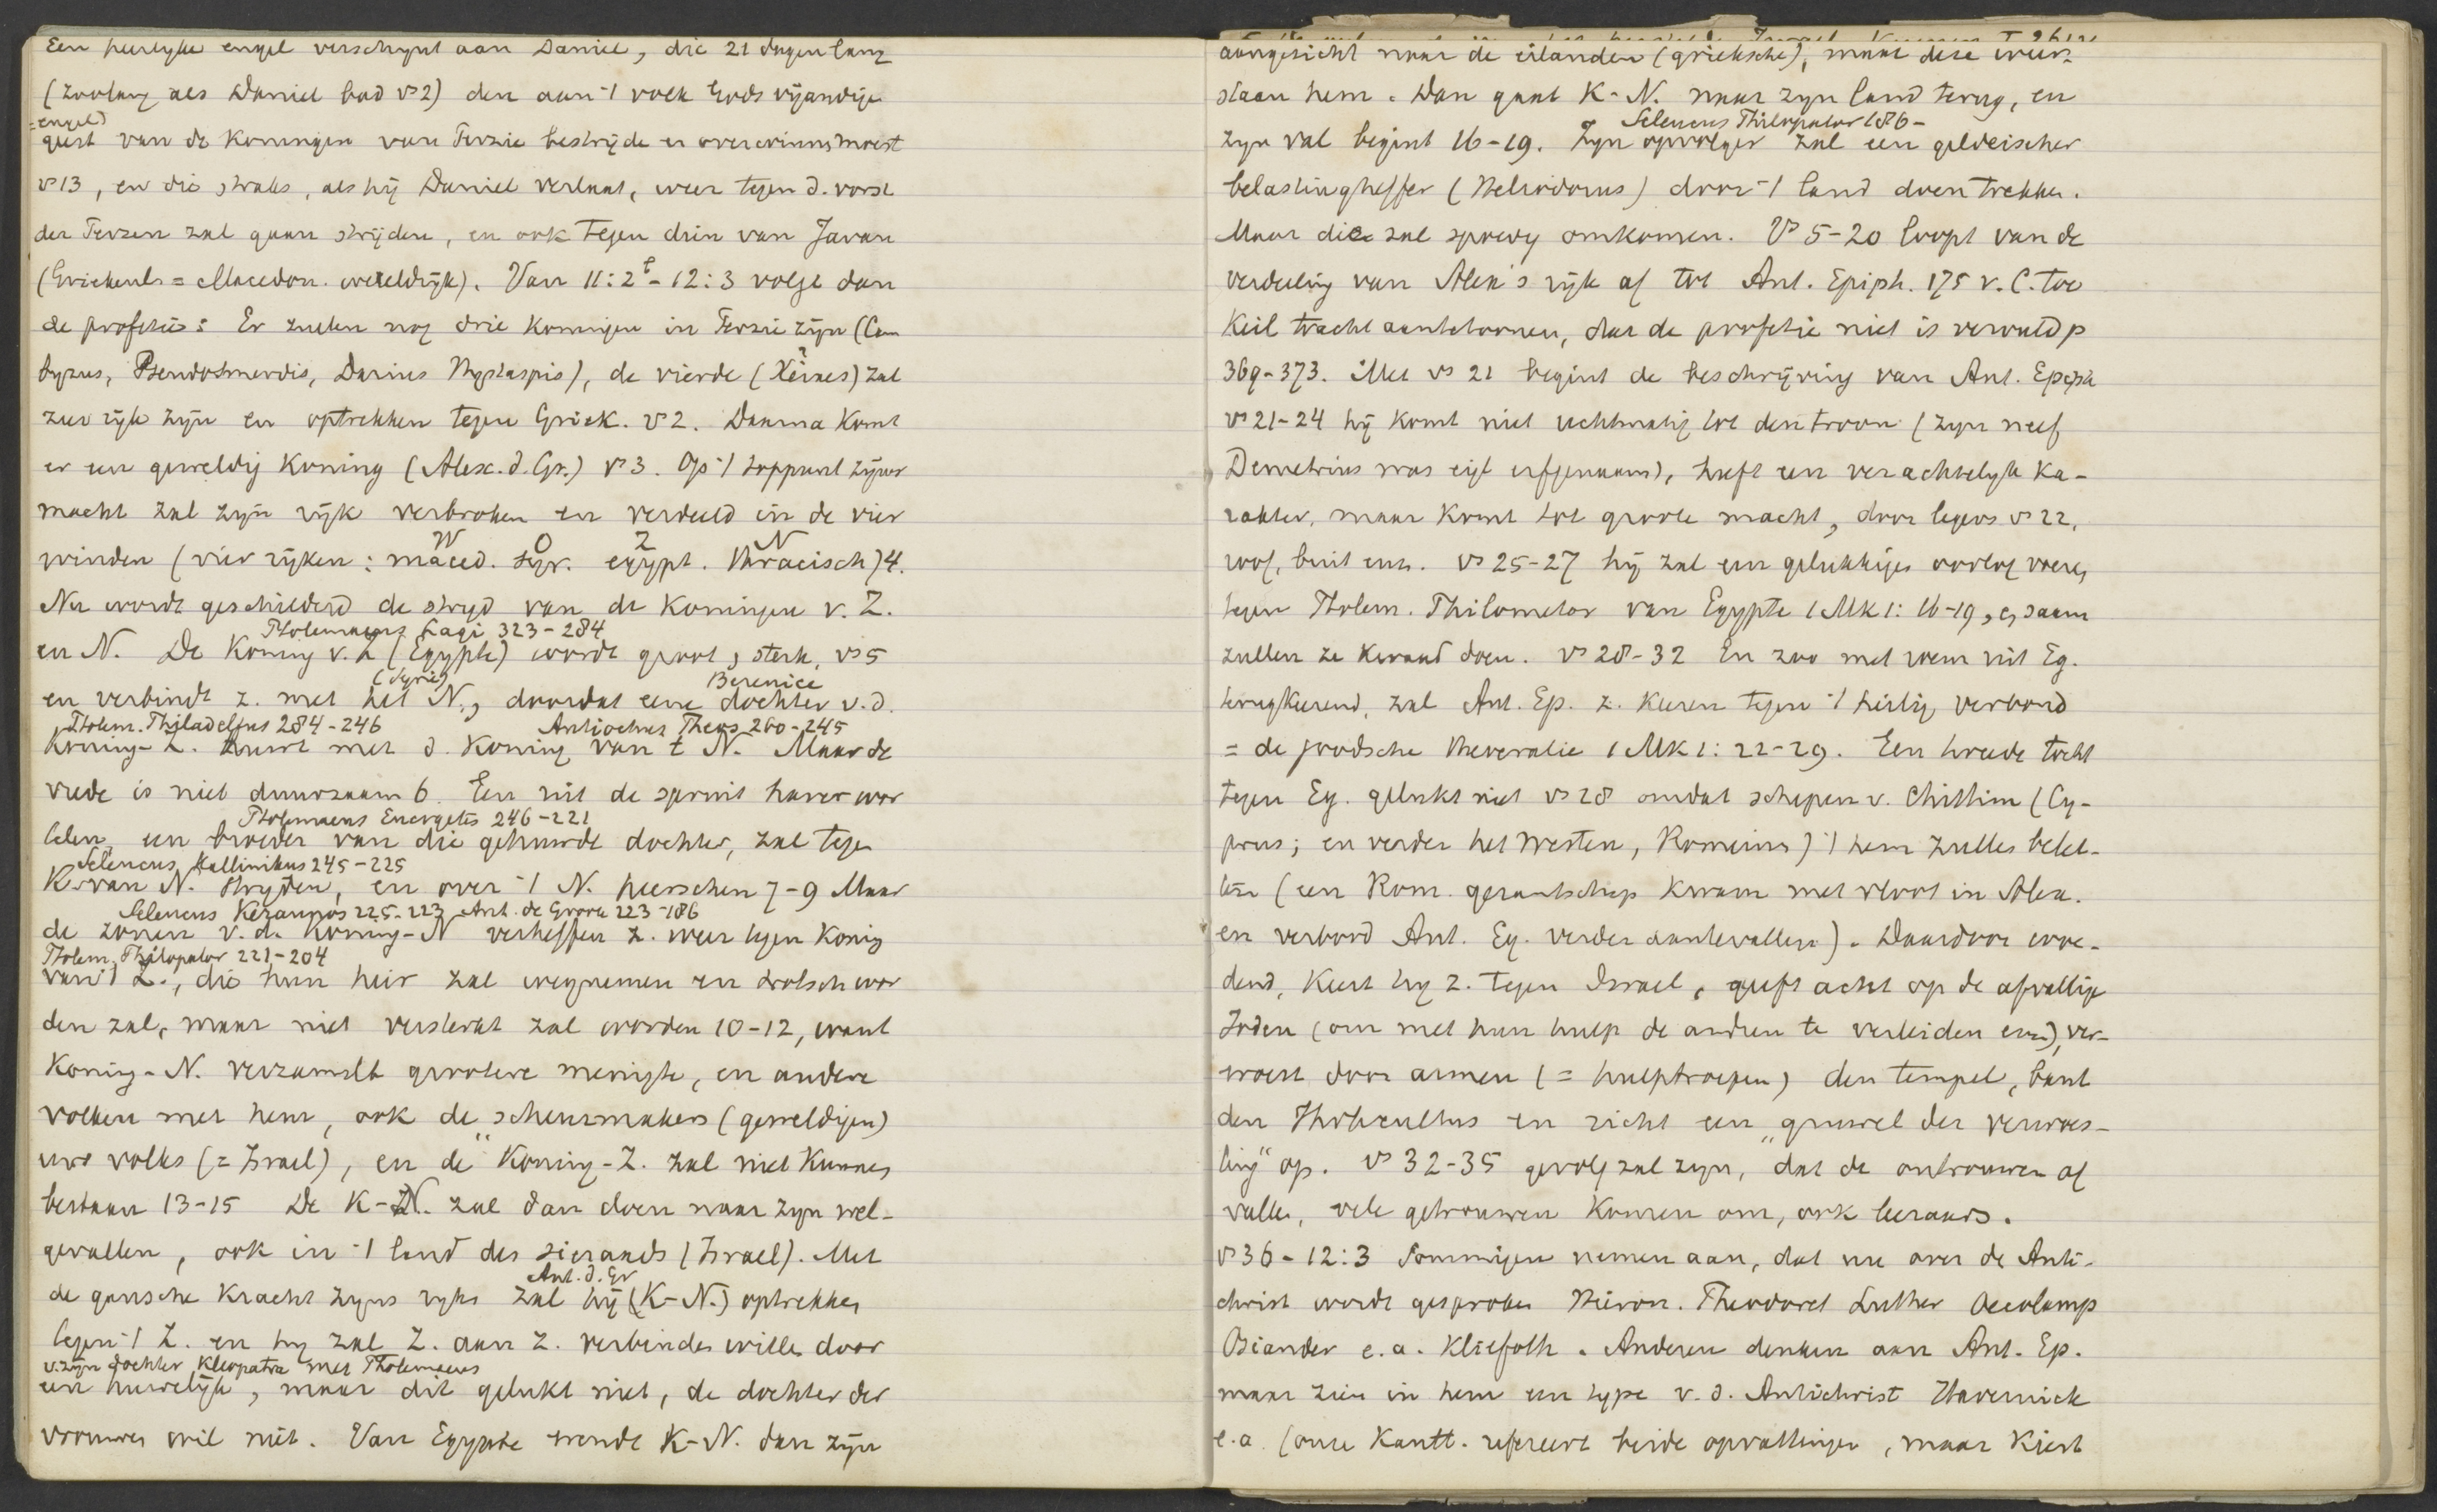 Een heerlyke engel verschynt aan Daniel, die 21 dagen lang
(zoolang als Daniel bad vs 2) den aan 't volk Gods vijandige
= engel
geest van de koningen van Perzie bestrijde en overwinnen moest
vs 13, en die straks, als hij Daniel verlaat, weer tegen d. vorst
der Perzen zal gaan strijden, en ook tegen dien van Javan
(Griekenl. = Macedon. wereldrijk). Van 11:2b - 12:3 volgt dan
de profetie: Er zullen nog drie koningen in Perzie zijn (Cam
byzus, Pseudosmerdis, Darius Hystaspis), de vierde (Xerxes) zal
zeer rijk zijn en optrekken tegen Griek. vs 2. Daarna komt
er een geweldig koning (Alex. d. Gr.) vs 3. Op 't toppunt zijner
macht zal zijn rijk verbroken en verdeeld in de vier
W O Z N
winden (vier rijken: maced. syr. egypt. thracisch) 4.
Nu wordt geschilderd de stryd van de koningen v. Z.
Ptolemaeus Lagi 323-284
en N. De koning v. Z (Egypte) wordt groot, sterk, vs 5
(Syrie) Berenice
en verbindt z. met het N., doordat eene dochter v. d.
Ptolem. Philadelfus 284-246 Antiochus Theos 260-245
koning-Z. huwt met d. koning van t N. Maar de
vrede is niet duurzaam 6. Een uit de spruit harer wor
Ptolemaeus Energetes 246-221
telen, een broeder van die gehuwde dochter, zal tegen
Seleucus Kallinikus 245-225
K. van N. stryden, en over 't N. heerschen 7-9 Maar
Seleucus Keraunos 225-223 Ant. de Groote 223-186
de zonen v. d. koning-N verheffen z. weer tegen koning
Ptolem. Philopator 221-204
van 't Z., die hun heir zal wegnemen en trotsch wor
den zal, maar niet versterkt zal worden 10-12, want
Koning-N. verzamelt grootere menigte, en andere
volken met hem, ook de "scheurmakers (geweldigen)
uws volks (= Israel), en de koning-Z. zal niet kunnen
bestaan 13-15 De K-N. zal dan doen naar zyn wel-
gevallen, ook in 't land des sieraads (Israel). Met
Ant. d. Gr
de gansche kracht zyns ryks zal hij (K-N.) optrekken
tegen 't Z. en hy zal Z. aan z. verbinden willen door
v. zijn dochter Kleopatra met Ptolemaeus
een huwelijk, maar dit gelukt niet, de dochter der
vrouwen wil niet. Van Egypte wendt K-N. dan zijn
aangezicht naar de eilanden (grieksche), maar deze weer-
staan hem. Dan gaat K-N. naar zyn land terug, en
Seleucus Philopator 186-
zyn val begint 16-19. Zyn opvolger zal een geldeischer
belastingheffer (Heliodorus) door 't land doen trekken.
Maar die zal spoedig omkomen. Vs 5-20 loopt van de
verdeeling van Alex's rijk af tot Ant. Epiph. 175 v. C. toe
Keil tracht aantetoonen, dat de profetie niet is vervuld p
369-373. Met vs 21 begint de beschrijving van Ant. Epiph
vs 21-24 hij komt niet rechtmatig tot den troon (zyn neef
Demetrius was eigl erfgenaam), heeft een verachtelyk ka-
rakter, maar komt tot groote macht, door legers vs 22,
roof, buit enz. vs 25-27 hij zal een gelukkigen oorlog voeren
tegen Ptolem. Philometor van Egypte 1 Mk 1:16-19, en saam
zullen ze kwaad doen. vs 28-32 En zoo met roem uit Eg.
terugkeerend, zal Ant. Ep. z. keeren tegen 't heilig verbond
= de joodsche theocratie 1 Mk 1:22-29. Een tweede tocht
tegen Eg. gelukt niet vs 28 omdat schepen v. Chittim (Cy-
prus; en verder het Westen, Romeinen) 't hem zullen belet-
ten (een Rom. gezantschap kwam met vloot in Alex.
en verbood Ant. Eg. verder aantevallen). Daardoor woe-
dend, keert hy z. tegen Israel, geeft acht op de afvallige
Joden (om met hun hulp de andren te verleiden enz), ver-
woest door armen (= hulptroepen) den tempel, bant
den Jhvhcultus en richt een "gruwel der verwoes-
ting" op. vs 32-35 gevolg zal zyn, dat de ontrouwen af
vallen, vele getrouwen komen om, ook leeraars.
vs 36-12:3 Sommigen nemen aan, dat nu over de Anti-
christ wordt gesproken Hieron. Theodoret Luther Oecolamp
Osiander e.a. Kliefoth. Anderen denken aan Ant. Ep.
maar zien in hem een type v. d. Antichrist Havernick
e.a. (onze Kantt. refereert beide opvattingen, maar kiest